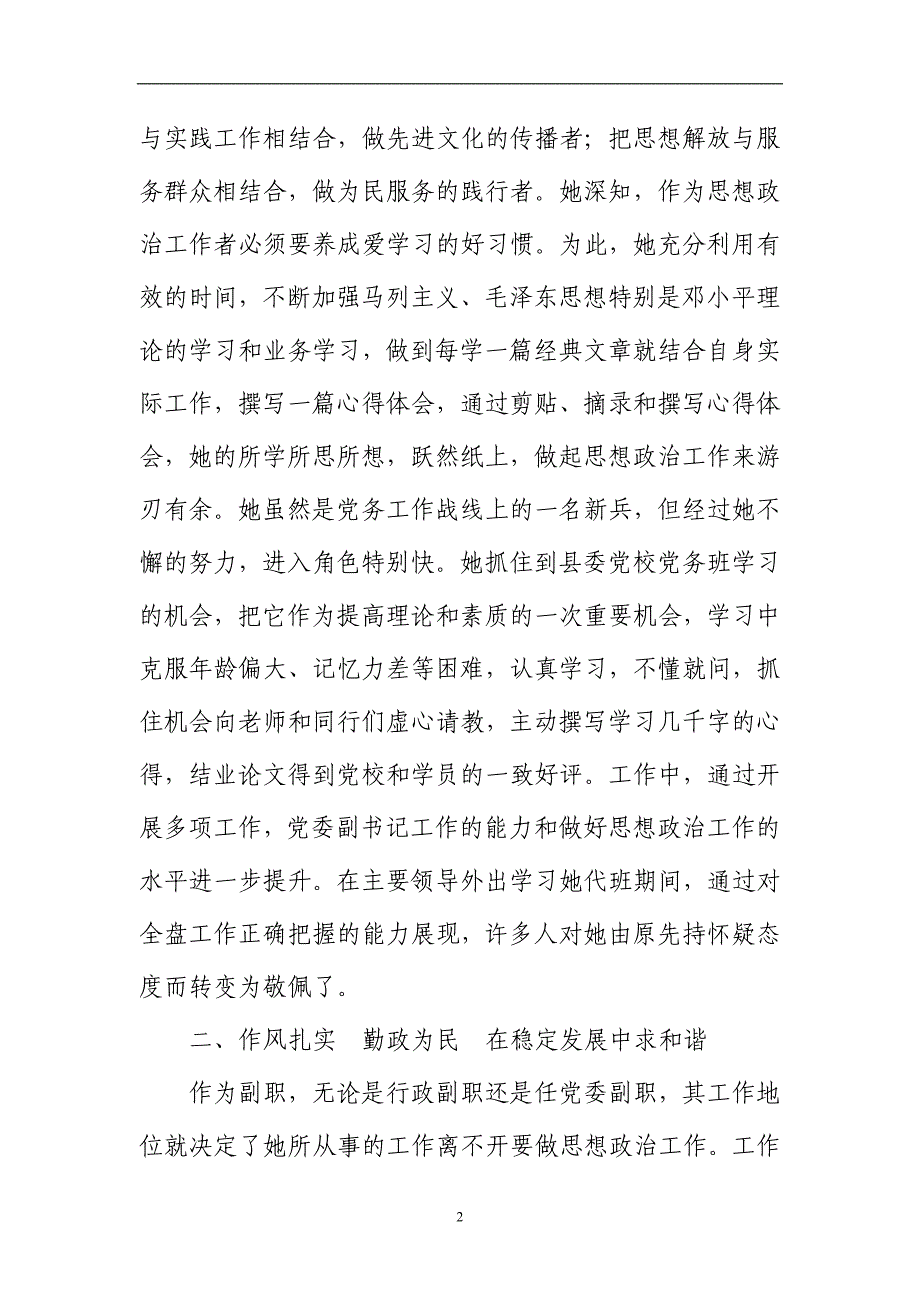 与实践工作相结合，做先进文化的传播者；把思想解放与服
务群众相结合，做为民服务的践行者。她深知，作为思想政
治工作者必须要养成爱学习的好习惯。为此，她充分利用有
效的时间，不断加强马列主义、毛泽东思想特别是邓小平理
论的学习和业务学习，做到每学一篇经典文章就结合自身实
际工作，撰写一篇心得体会，通过剪贴、摘录和撰写心得体
会，她的所学所思所想，跃然纸上，做起思想政治工作来游
刃有余。她虽然是党务工作战线上的一名新兵，但经过她不
懈的努力，进入角色特别快。她抓住到县委党校党务班学习
的机会，把它作为提高理论和素质的一次重要机会，学习中
克服年龄偏大、记忆力差等困难，认真学习，不懂就问，抓
住机会向老师和同行们虚心请教，主动撰写学习几千字的心
得，结业论文得到党校和学员的一致好评。工作中，通过开
展多项工作，党委副书记工作的能力和做好思想政治工作的
水平进一步提升。在主要领导外出学习她代班期间，通过对
全盘工作正确把握的能力展现，许多人对她由原先持怀疑态
度而转变为敬佩了。
二、作风扎实　勤政为民　在稳定发展中求和谐
作为副职，无论是行政副职还是任党委副职，其工作地
位就决定了她所从事的工作离不开要做思想政治工作。工作
2